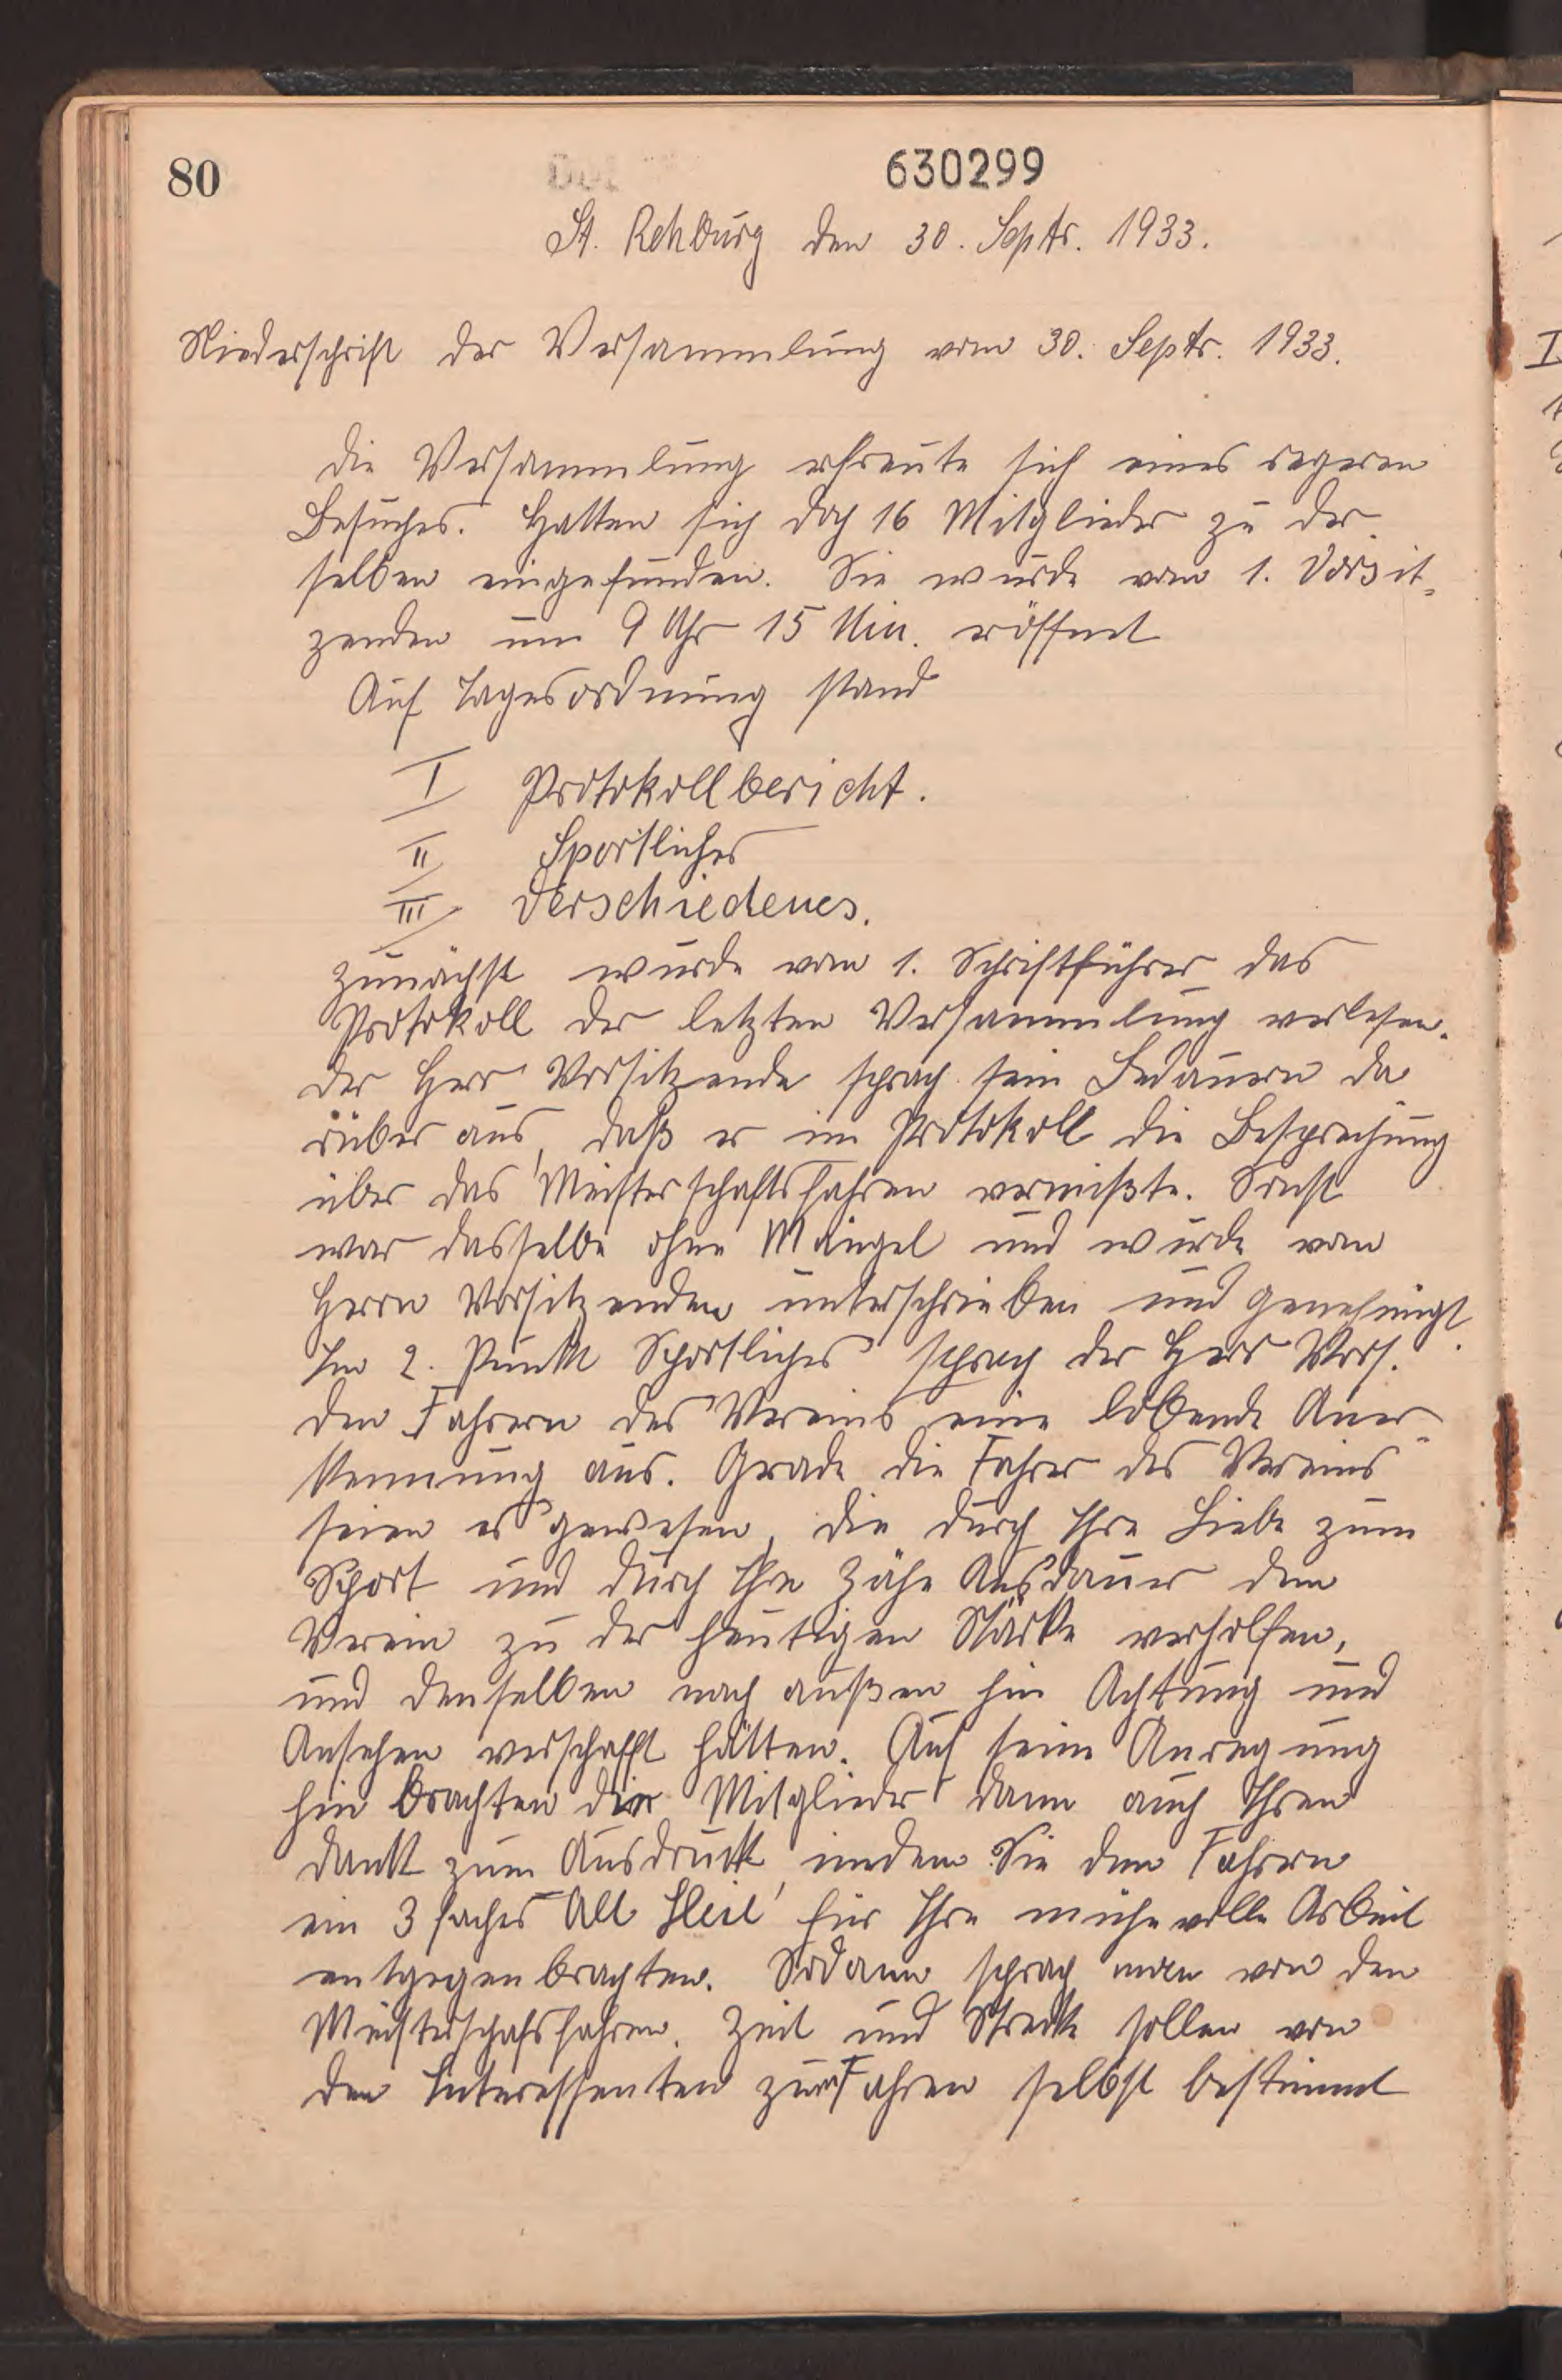 80
630299
St. Rehburg den 30. Septr. 1933.
Niederschrift der Versammlung vom 30. Septr. 1933.
die Versammlung erfreute sich eines regeren
Besuches. Hatten sich doch 16 Mitglieder zu der
selben eingefunden. Sie wurde vom 1. Vorsit-
zenden um 9 Uhr 15 Min. eröffnet
Auf Tagesordnung stand
I Protokollbericht.
II Sportliches
III Verschiedenes.
zunächst wurde vom 1. Schriftführer das
Protokoll der letzten Versammlung verlesen.
der Herr Vorsitzende sprach sein Bedauern da
rüber aus, daß er im Protokoll die Besprechung
über das Meisterschaftsfahren vermißte. Sonst
war dasselbe ohne Mängel und wurde vom
Herrn Vorsitzenden unterschrieben und genehmigt.
Im 2. Punkt Sportliches sprach der Herr Vors.
den Fahrern des Vereins eine lobende Aner-
kennung aus. Grade die Fahrer des Vereins
seien es gewesen, die durch Ihre Liebe zum
Sport und durch Ihre Zähe Ausdauer dem
Verein zu der heutigen Stärke verholfen,
und denselben nach außen hin Achtung und
Ansehen verschafft hätten. Auf seine Anregung
hin brachten die Mitglieder dann auch Ihren
Dank zum Ausdruck, indem Sie den Fahrern
ein 3 faches All Heil für Ihre mühevolle Arbeit
entgegenbrachten. Sodann sprach man von den
Meisterschafsfahren. Zeit und Strecke sollen von
den Interessenten zum Fahren selbst bestimmt